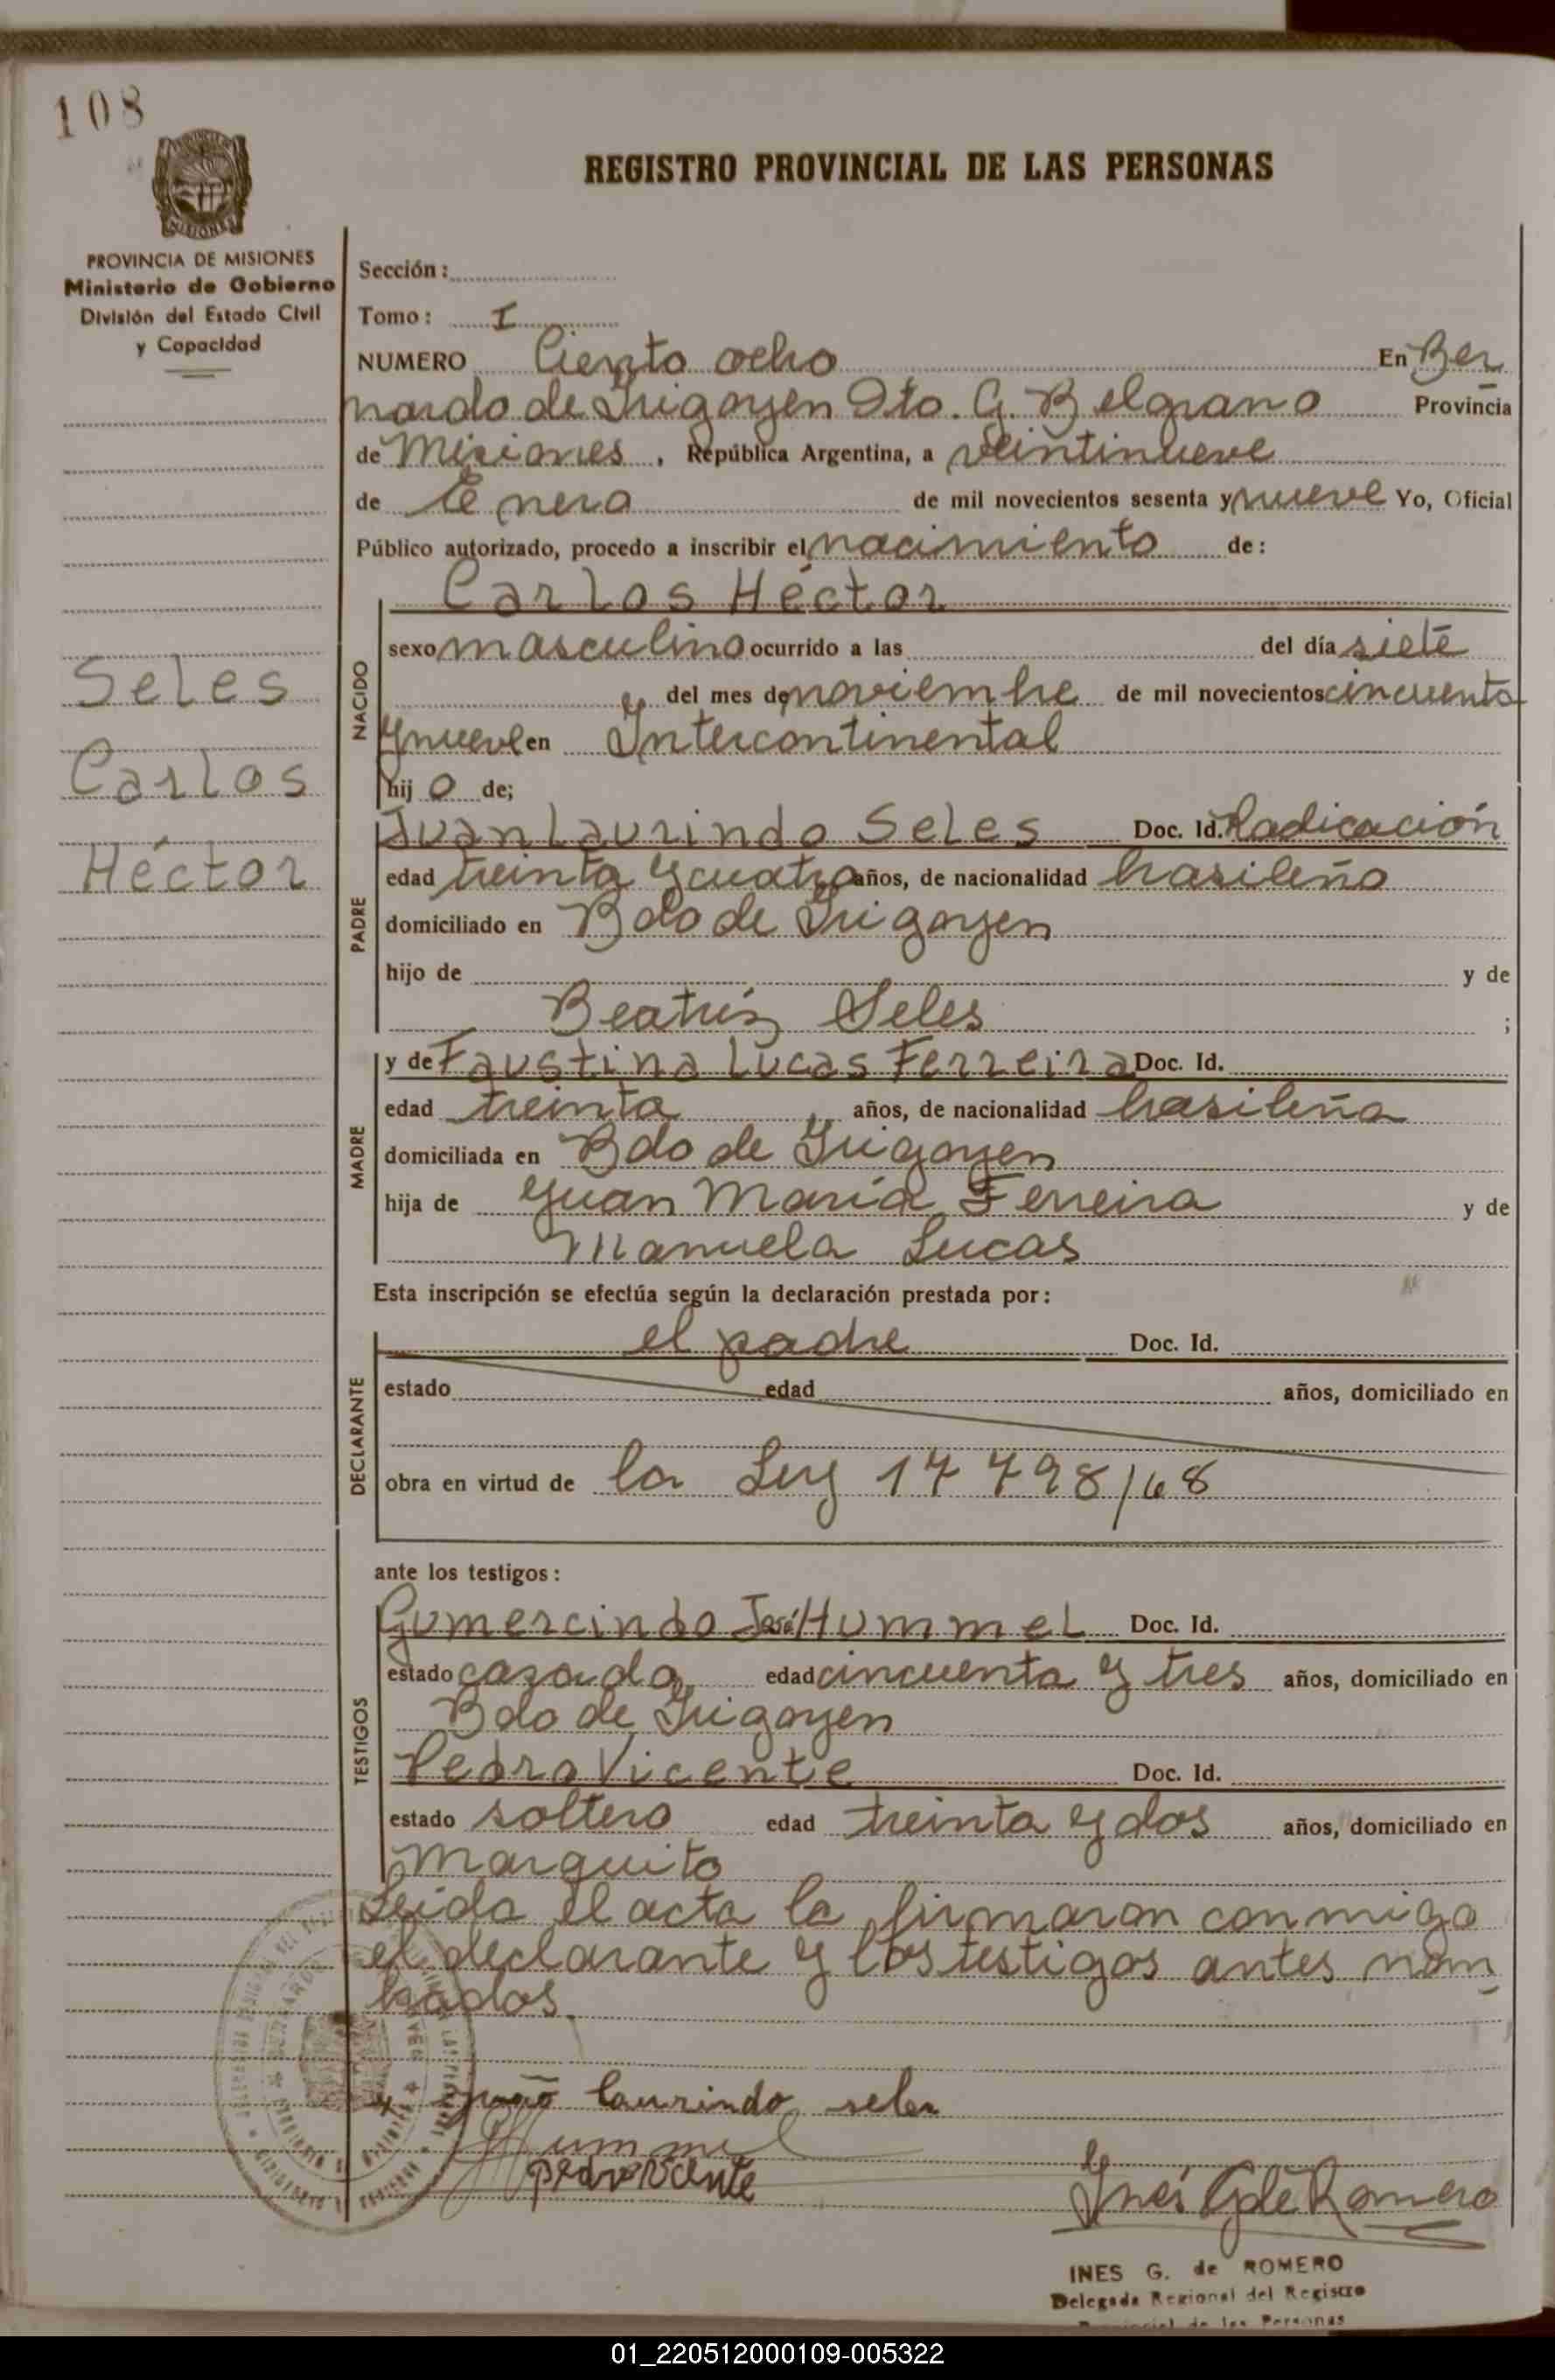 108
REGISTRO PROVINCIAL DE LAS PERSONAS
MISIONES
PROVINCIA DE MISIONES
Ministerio de Gobierno
División del Estado Civil
y Capacidad
Sección:
Tomo: I
NUMERO Ciento ocho En Ber
nardo de Irigoyen Dto. G. Belgrano Provincia
de Misiones, República Argentina, a veintinueve
de Enero de mil novecientos sesenta y nueve Yo, Oficial
Público autorizado, procedo a inscribir el nacimiento de:
Carlos Héctor
NACIDO
sexo masculino ocurrido a las del día siete
del mes de noviembre de mil novecientos cincuenta
y nueve en Intercontinental
hijo de;
Seles
Carlos
Héctor
PADRE
Juan Laurindo Seles Doc. Id. Radicación
edad treinta y cuatro años, de nacionalidad brasileño
domiciliado en Bdo de Irigoyen
hijo de y de
Beatriz Seles ;
MADRE
y de Faustina Lucas Ferreira Doc. Id.
edad treinta años, de nacionalidad brasileña
domiciliada en Bdo de Irigoyen
hija de Juan María Ferreira y de
Manuela Lucas
Esta inscripción se efectúa según la declaración prestada por:
DECLARANTE
el padre Doc. Id.
estado edad años, domiciliado en
obra en virtud de la Ley 17798/68
ante los testigos:
TESTIGOS
Gumercindo José Hummel Doc. Id.
estado casado edad cincuenta y tres años, domiciliado en
Bdo de Irigoyen
Pedro Vicente Doc. Id.
estado soltero edad treinta y dos años, domiciliado en
Marquito
Leída el acta la firmaron conmigo
el declarante y los testigos antes nom
brados
x João laurindo seles
Hummel
pedro vicente
Inés G de Romero
INES G. de ROMERO
Delegada Regional del Registro
Provincial de las Personas
01_220512000109-005322